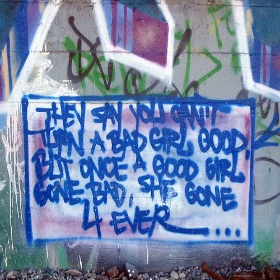 THEY SAY YOU CAN'T
TURN A BAD GIRL GOOD,
BUT ONCE A GOOD GIRL
GONE BAD, SHE GONE
4 EVER....